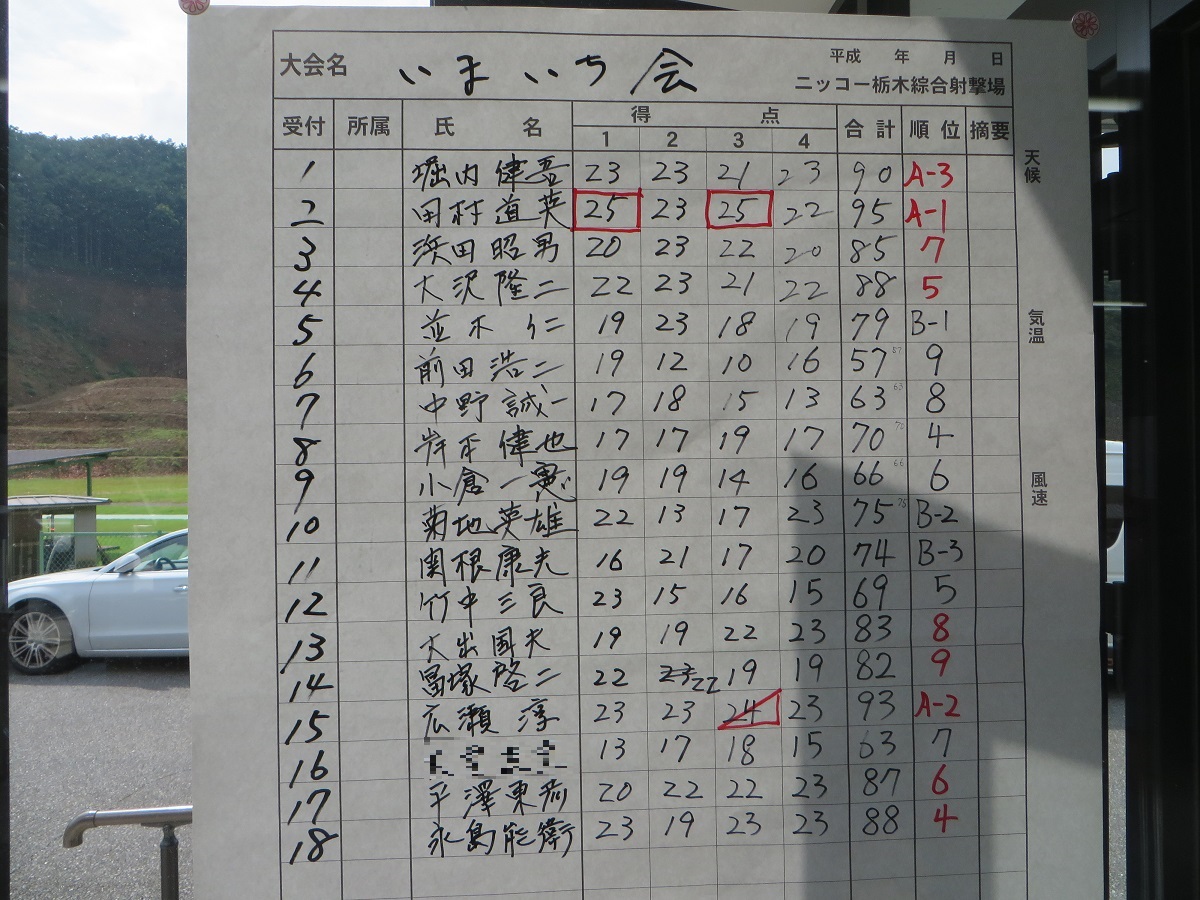 大会名 いまいち会 平成 年 月 日
ニッコー栃木綜合射撃場
受付 所属 氏 名 得 点 合計 順位 摘要
1 2 3 4
1 堀内健吾 23 23 21 23 90 A-3
2 田村道英 25 23 25 22 95 A-1
3 浜田昭男 20 23 22 20 85 7
4 大沢隆二 22 23 21 22 88 5
5 並木仁 19 23 18 19 79 B-1
6 前田浩二 19 12 10 16 57 9
7 中野誠一 17 18 15 13 63 8
8 岸本健也 17 17 19 17 70 4
9 小倉一憲 19 19 14 16 66 6
10 菊地英雄 22 13 17 23 75 B-2
11 関根康夫 16 21 17 20 74 B-3
12 竹中三良 23 15 16 15 69 5
13 大出国夫 19 19 22 23 83 8
14 冨塚啓二 22 22 19 19 82 9
15 広瀬淳 23 23 24 23 93 A-2
16 13 17 18 15 63 7
17 平澤東 20 22 22 23 87 6
18 永島能衛 23 19 23 23 88 4
天候
気温
風速